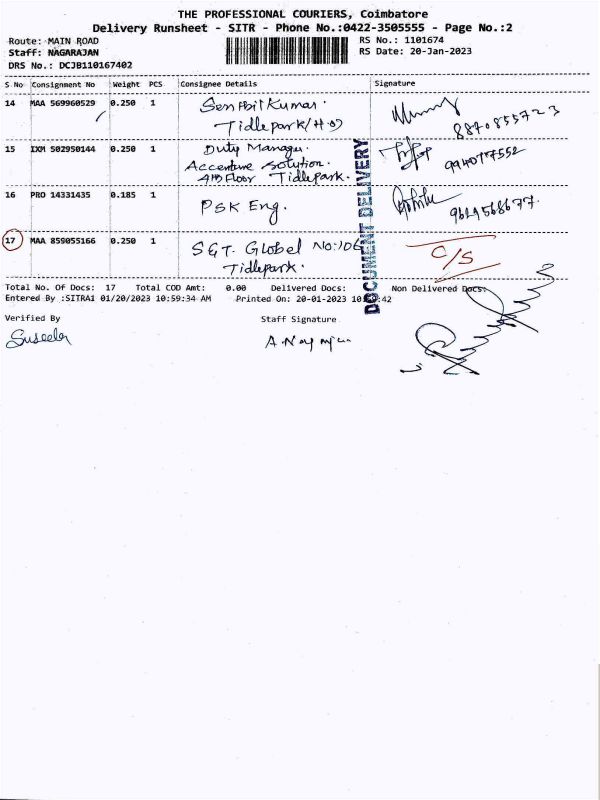 THE PROFESSIONAL COURIERS, Coimbatore
Delivery Runsheet - SITR - Phone No.:0422-3505555 - Page No.:2
Route: MAIN ROAD RS No.: 1101674
Staff: NAGARAJAN RS Date: 20-Jan-2023
DRS No.: DCJB110167402
S No Consignment No Weight PCS Consignee Details Signature
14 MAA 569960529 0.250 1 Senthil Kumar.
Tidlepark/
8870855723
15 IXM 502950144 0.250 1 Duty Manager.
Accenture Solution.
4th Floor Tidlepark.
9940777552
16 PRO 14331435 0.185 1 PSK Eng.
17 MAA 859055166 0.250 1 S&T. Global No:106
Tidlepark.
C/S
DOCUMENT DELIVERY
Total No. Of Docs: 17 Total COD Amt: 0.00 Delivered Docs: Non Delivered Docs:
Entered By :SITRA1 01/20/2023 10:59:34 AM Printed On: 20-01-2023
Verified By Staff Signature
Suseela